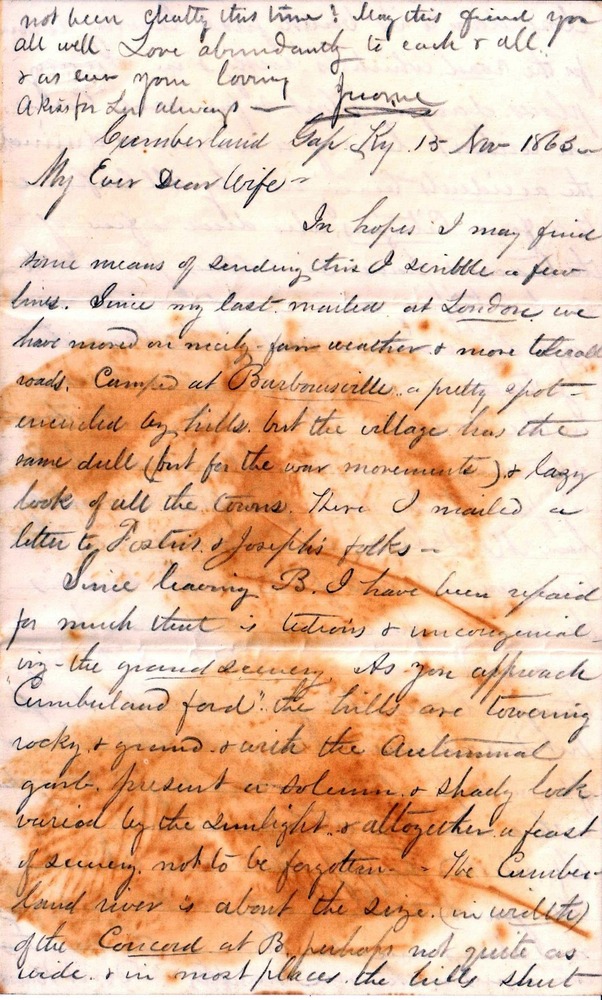 not been chatty this time! May this find you
all well. Love abundantly to each & all.
& as ever your loving
A kiss for Lu always — Jerome
Cumberland Gap. Ky. 15 Nov 1863
My Ever Dear Wife -
In hopes I may find
some means of sending this I scribble a few
lines. Since my last mailed at London we
have moved on nicely - fair weather & more tolerable
roads. Camped at Barboursville, a pretty spot -
encircled by hills, but the village has the
same dull (but for the war movements) & lazy
look of all the towns. There I mailed a
letter to & Joseph's folks -
Since leaving B. I have been repaid
for much that is tedious & uncongenial -
viz - the grand scenery. As you approach
"Cumberland ford" the hills are towering
rocky & grand & with the autumnal
garb, present a solemn & shady look
varied by the sunlight, & altogether a feast
of scenery not to be forgotten - The Cumber-
land river is about the size (in width)
of the Concord at B. perhaps not quite as
wide, & in most places the hills shut